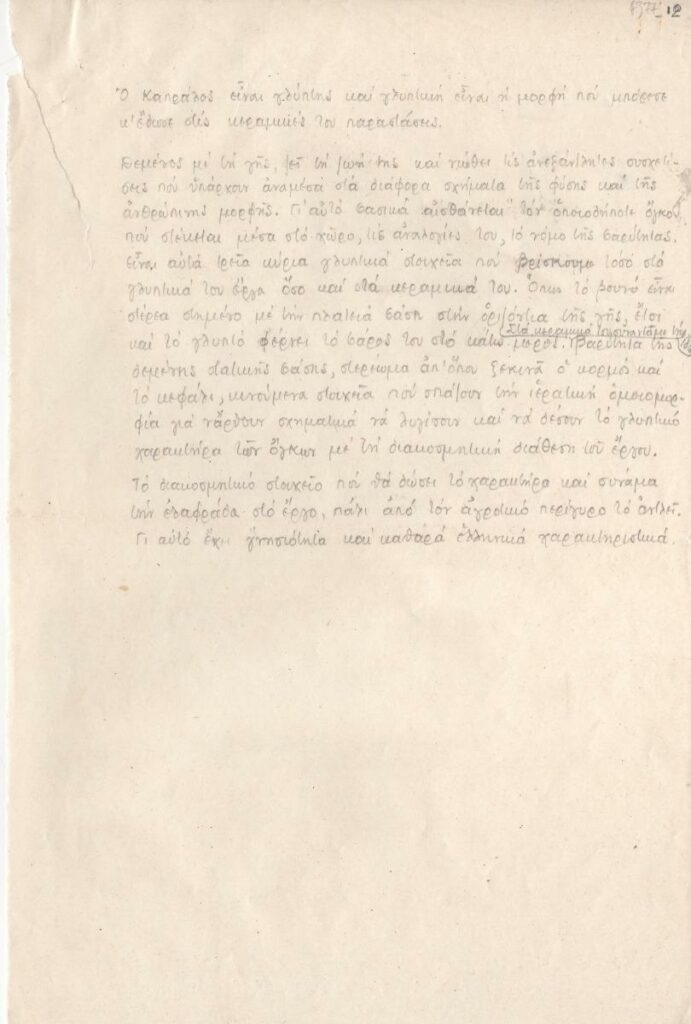 12
Ὁ Καπράλος εἶναι γλύπτης καί γλυπτική εἶναι ἡ μορφή πού μπόρεσε
κ' ἔδωσε στίς κεραμικές του παραστάσεις.
Δεμένος μέ τή γῆς, ζεῖ τή ζωή της καί νιώθει τίς ἀνεξάντλητες συσχετί-
σεις πού ὑπάρχουν ἀνάμεσα στά διάφορα σχήματα τῆς φύσης καί τῆς
ἀνθρώπινης μορφῆς. Γι' αὐτό βασικά αἰσθάνεται τόν ὁποιοδήποτε ὄγκο
πού στέκεται μέσα στό χῶρο, τίς ἀναλογίες του, τό νόμο τῆς βαρύτητας.
Εἶναι αὐτά τρεῖα κύρια γλυπτικά στοιχεῖα πού βρίσκουμε τόσο στό
γλυπτικό του ἔργο ὅσο καί στά κεραμικά του. Ὅπως τό βουνό εἶναι
στέρεα στημένο μέ τήν πλατειά βάση στήν ὁριζόντια τῆς γῆς, ἔτσι
καί τό γλυπτό φέρνει τό βάρος του στό κάτω μέρος. Στά κεραμικά τήν συναντᾶμε τήν
βαρύτητα τῆς
δεμένης στατικῆς βάσης, στερέωμα ἀπ' ὅπου ξεκινᾶ ὁ κορμός καί
τό κεφάλι, κινούμενα στοιχεῖα πού σπάζουν τήν ἱερατική ὁμοιομορ-
φία γιά νἄρθουν σχηματικά νά λυγίσουν καί νά δέσουν τό γλυπτικό
χαρακτήρα τῶν ὄγκων μέ τή διακοσμητική διάθεση τοῦ ἔργου.
Τό διακοσμητικό στοιχεῖο πού θά δώσει τό χαρακτήρα καί συνάμα
τήν ἐλαφράδα στό ἔργο, πάλι ἀπό τόν ἀγροτικό περίγυρο τό ἀντλεῖ.
Γι αὐτό ἔχει γνησιότητα καί καθαρά ἑλληνικά χαρακτηριστικά.